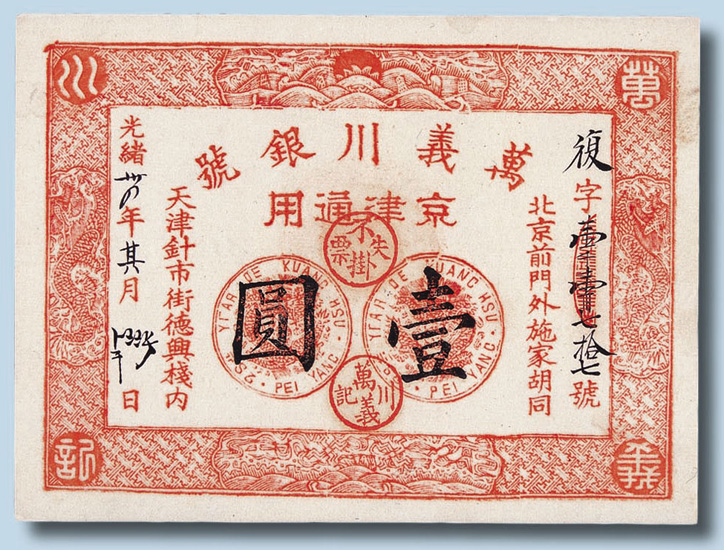 萬
川
萬義川銀號
京津通用
復字 七拾七號
北京前門外施家胡同
失票不掛
壹圓
YEAR OF KUANG HSU · PEI YANG
YEAR OF KUANG HSU · PEI YANG
萬義川記
天津針市街德興棧內
光緒 年 月 日
義
記